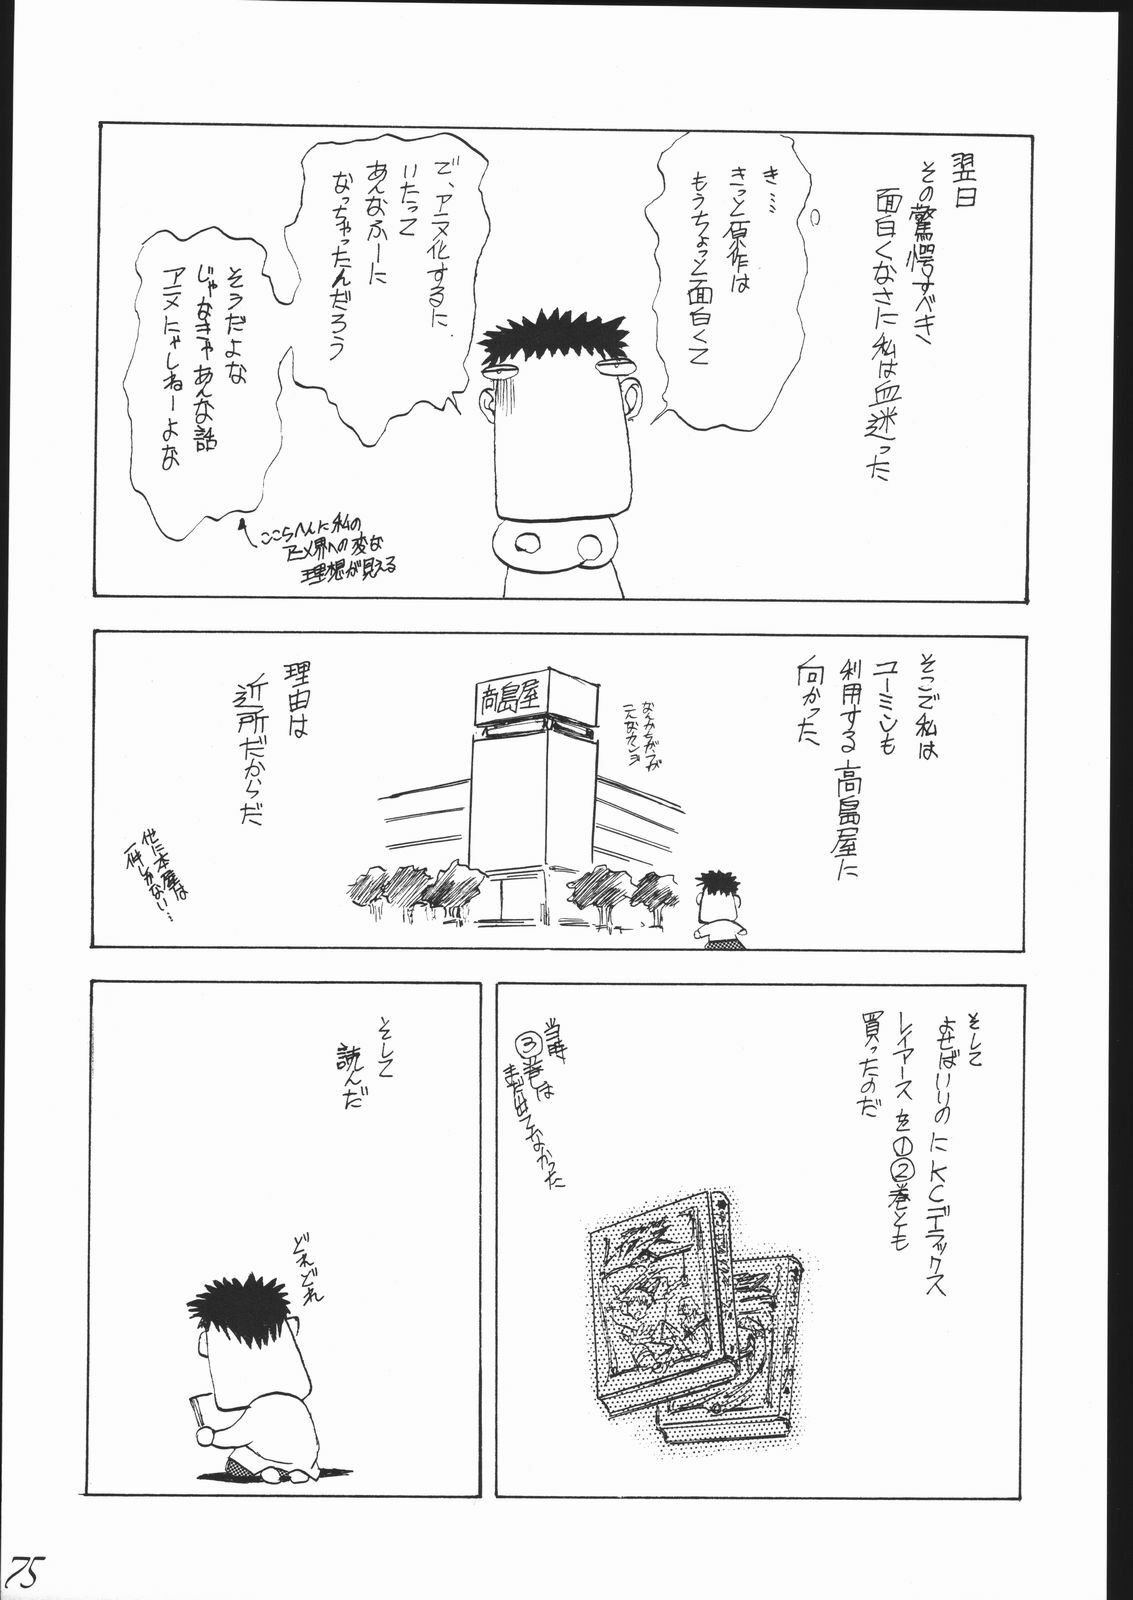 翌日
その驚愕すべき
面白くなさに私は血迷った
き…
きっと原作は
もうちょっと面白くて
で、アニメ化するに
いたって
あんなふーに
なっちゃったんだろう
そうだよな
じゃなきゃあんな話
アニメにゃしねーよな
ここらへんに私の
アニメ界への変な
理想が見える
そこで私は
ユーミンも
利用する高島屋に
向かった
なんかちがうが
こんなカンジ
高島屋
理由は
近所だからだ
他に本屋は
一件しかない…
そして
よせばいいのにKCデラックス
レイアースを①②巻とも
買ったのだ
当時
③巻は
まだ出てなかった
レイアース
そして
読んだ
どれどれ
75